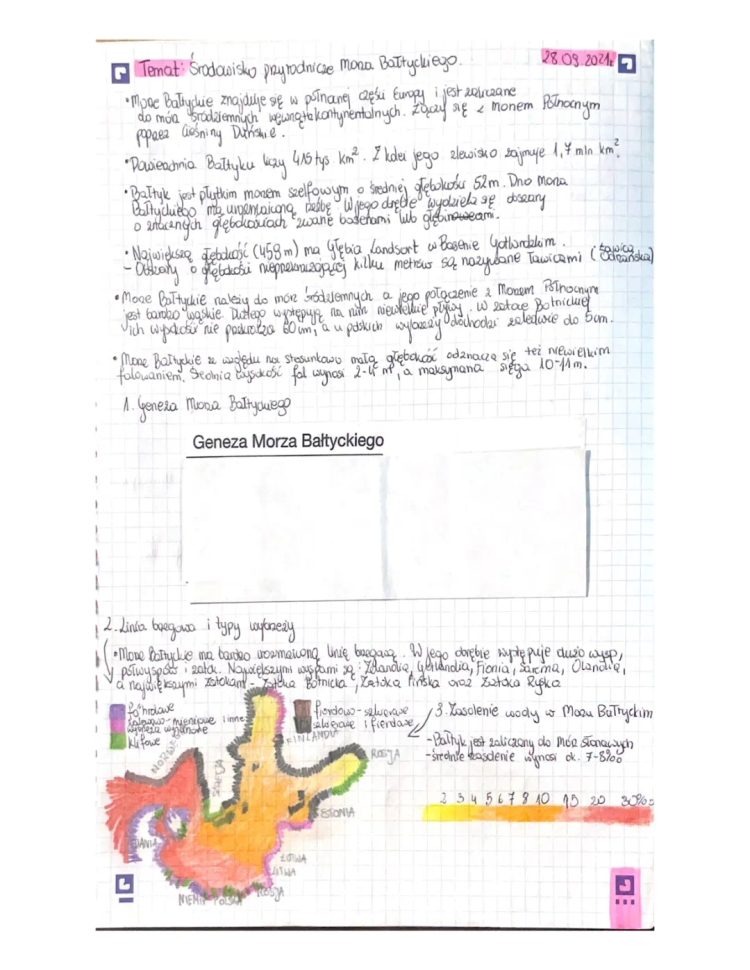 Temat: Środowisko przyrodnicze Morza Bałtyckiego. 28.09.2021r.
• Morze Bałtyckie znajduje się w północnej części Europy i jest zaliczane
do mórz śródziemnych wewnątrzkontynentalnych. Łączy się z Morzem Północnym
poprzez Cieśniny Duńskie.
• Powierzchnia Bałtyku liczy 415 tys km². Z kolei jego zlewisko zajmuje 1,7 mln km².
• Bałtyk jest płytkim morzem szelfowym o średniej głębokości 52m. Dno morza
Bałtyckiego ma urozmaiconą rzeźbę. W jego obrębie wydziela się obszary
o znacznych głębokościach zwane basenami lub głębinowcami.
• Największą głębokość (459m) ma Głębia Landsort w Basenie Gotlandzkim.
- Obszary o głębokości nieprzekraczającej kilku metrów są nazywane ławicami (Ławica Odrzańska)
• Morze Bałtyckie należy do mórz śródziemnych a jego połączenie z Morzem Północnym
jest bardzo wąskie. Dlatego występują na nim niewielkie pływy. W zatoce Botnickiej
ich wysokość nie przekracza 60 cm, a u polskich wybrzeży dochodzi zaledwie do 5cm.
• Morze Bałtyckie ze względu na stosunkowo małą głębokość odznacza się też niewielkim
falowaniem. Średnia wysokość fal wynosi 2-4 m, a maksymalna sięga 10-11m.
1. Geneza Morza Bałtyckiego
Geneza Morza Bałtyckiego
2. Linia brzegowa i typy wybrzeży
• Morze Bałtyckie ma bardzo urozmaiconą linię brzegową. W jego obrębie występuje dużo wysp,
półwyspów i zatok. Największymi wyspami są: Zelandia, Gotlandia, Fionia, Sarema, Olandia,
a największymi zatokami - Zatoka Botnicka, Zatoka Fińska oraz Zatoka Ryska
mierzejowe i inne
wybrzeża wyrównane
klifowe
fiordowo-szkierowe
szkierowe i fierdowe
3. Zasolenie wody w Morzu Bałtyckim
- Bałtyk jest zaliczany do mórz słonawych
- średnie zasolenie wynosi ok. 7-8‰
2 3 4 5 6 7 8 10 15 20 30‰
NORWE
SZWECJA
FINLANDIA
ROSJA
ESTONIA
ŁOTWA
LITWA
ROSJA
POLSKA
NIEMC
DANIA